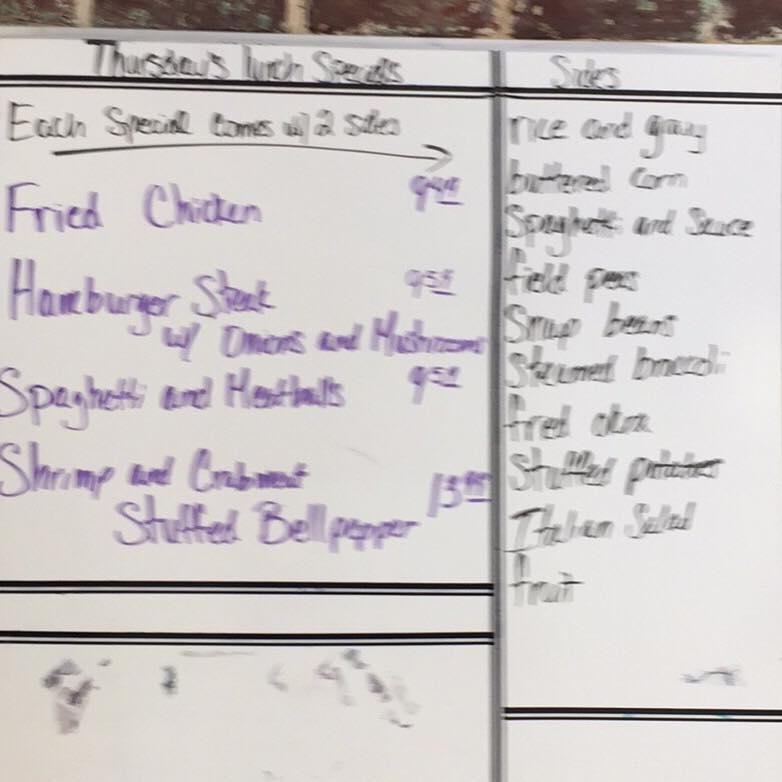 Thursday's lunch Specials
Each Special comes w/ 2 sides
Fried Chicken
Hamburger Steak
w/ Onions and Mushrooms
Spaghetti and Meatballs
Shrimp and Crabmeat
Stuffed Bellpepper
Sides
rice and gravy
buttered corn
Spaghetti and Sauce
field peas
Snap beans
Steamed broccoli
fried okra
Stuffed potatoes
Italian Salad
fruit